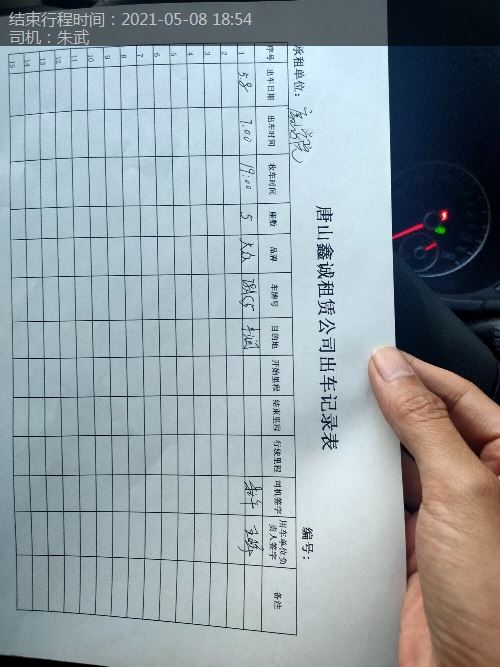 结束行程时间：2021-05-08 18:54
司机：朱武
唐山鑫诚租赁公司出车记录表
承租单位：
编号：
序号 出车日期 出车时间 收车时间 座数 品牌 车牌号 目的地 开始里程 结束里程 行驶里程 司机签字 用车单位负责人签字 备注
1 5.8 7.00 19:00 5 大众
2
3
4
5
6
7
8
9
10
11
12
13
14
15